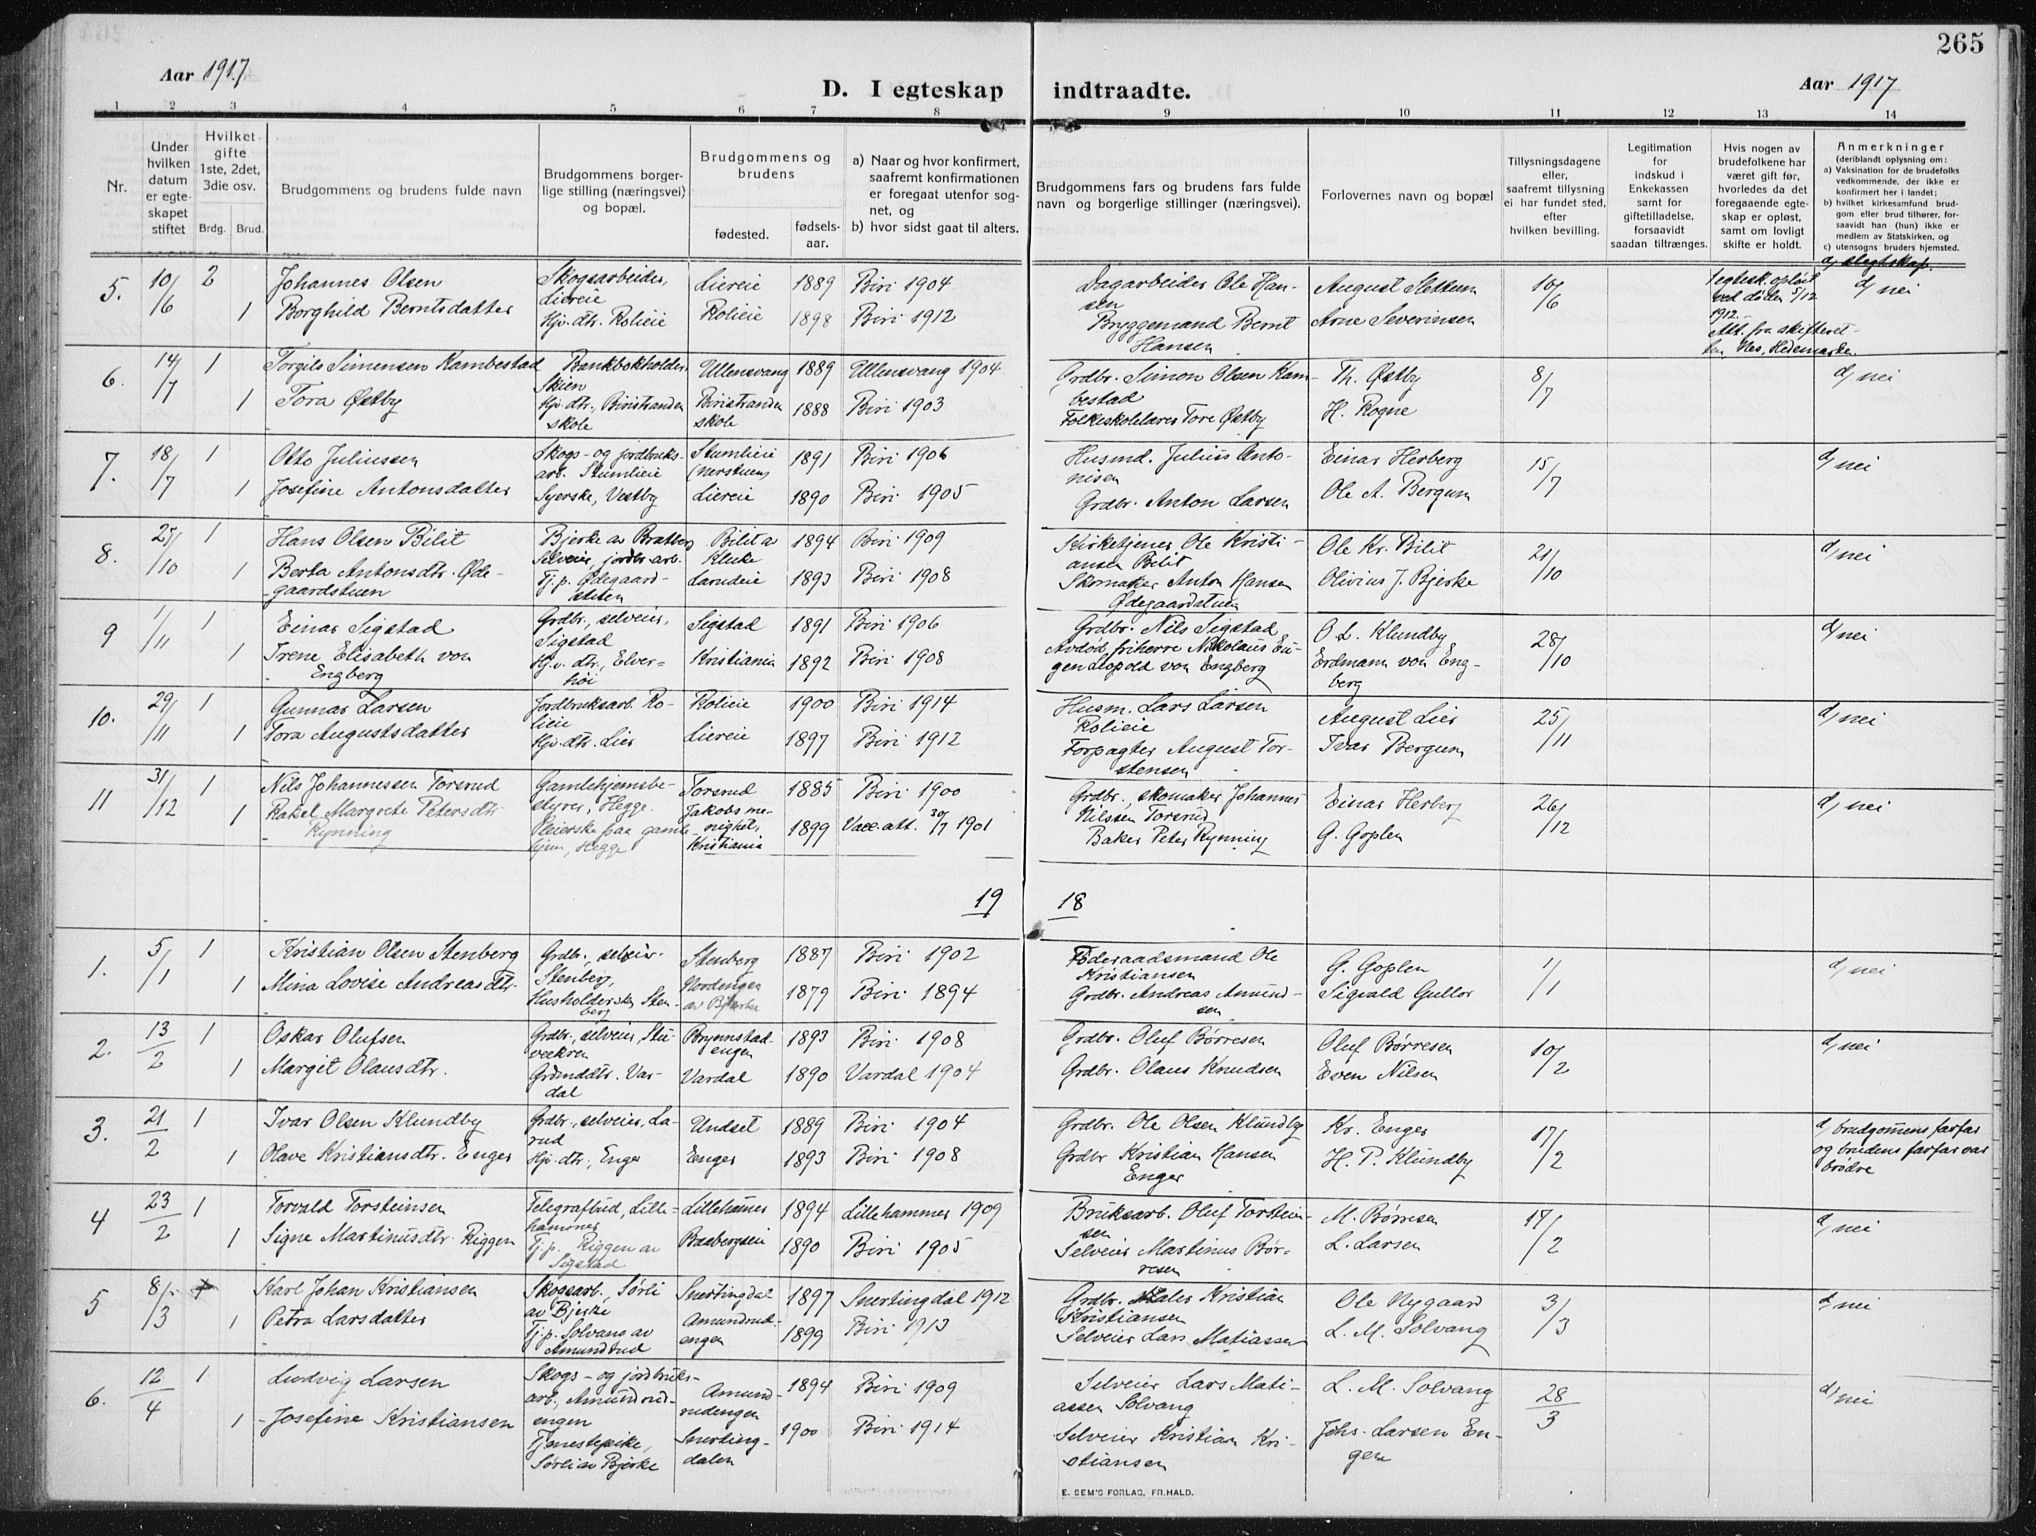 265
Aar 1917.
D. I egteskap indtraadte.
Aar 1917
1 2 3 4 5 6 7 8 9 10 11 12 13 14
Nr.
Under hvilken datum er egteskapet stiftet
Hvilket gifte 1ste, 2det, 3die osv.
Brdg. Brud.
Brudgommens og brudens fulde navn
Brudgommens borgerlige stilling (næringsvei) og bopæl.
Brudgommens og brudens
fødested.
fødselsaar.
a) Naar og hvor konfirmert, saafremt konfirmationen er foregaat utenfor sognet, og
b) hvor sidst gaat til alters.
Brudgommens fars og brudens fars fulde navn og borgerlige stillinger (næringsvei).
Forlovernes navn og bopæl
Tillysningsdagene eller, saafremt tillysning ei har fundet sted, efter hvilken bevilling.
Legitimation for indskud i Enkekassen samt for giftetilladelse, forsaavidt saadan tiltrænges.
Hvis nogen av brudefolkene har været gift før, hvorledes da det foregaaende egteskap er opløst, samt om lovligt skifte er holdt.
Anmerkninger
(deriblandt oplysning om:
a) Vaksination for de brudefolks vedkommende, der ikke er konfirmert her i landet;
b) hvilket kirkesamfund brudgom eller brud tilhører, forsaavidt han (hun) ikke er medlem av Statskirken, og
c) utensogns bruders hjemsted.
d) slegtskap.
5. 10/6 2 Johannes Olsen Skogsarbeider, Liereie Liereie 1889 Biri 1904 Dagarbeider Ole Hansen August Slettum 10/6 1 egtesk. opløst ved døden 5/12 1912. Att. fra skifteretten Nes, Hedemarken d/ nei
1 Borghild Berntsdatter Hjv. dtr. Rolieie Rolieie 1898 Biri 1912 Bryggemand Bernt Hansen Arne Severinsen
6. 14/7 1 Torgils Simensen Kambestad Bankbokholder, Skien Ullensvang 1889 Ullensvang 1904 Grdbr. Simon Olsen Kambestad Th. Østby 8/7 d/ nei
1 Tora Østby Hjv. dtr., Biristranden skole Biristranden skole 1888 Biri 1903 Folkeskolelærer Tore Østby H. Rogne
7. 18/7 1 Otto Juliussen Skogs- og jordbruksarb. Stumlieie Stumlieie (nerstuen) 1891 Biri 1906 Husmd. Julius Antonisen Einar Herberg 15/7 d/ nei
1 Josefine Antonsdatter Syerske, Vestby Liereie 1890 Biri 1905 Grdbr. Anton Larsen Ole A. Bergum
8. 25/10 1 Hans Olsen Bilit Bjerke av Bratberg selveier, jordbr.arb. Bilit av Kluke 1894 Biri 1909 Kirketjener Ole Kristiansen Bilit Ole Kr. Bilit 21/10 d/ nei
1 Berta Antonsdtr. Ødegaardstuen Tj. p. Ødegaardstuen Larudeie 1893 Biri 1908 Skomaker Anton Hansen Ødegaardstuen Olivius J. Bjerke
9 1/11 1 Einar Sigstad Grdbr., selveier, Sigstad Sigstad 1891 Biri 1906 Grdbr. Nils Sigstad O. L. Klundby 28/10 d/ nei
1 Irene Elisabeth von Engberg Hjv. dtr., Elverhøi Kristiania 1892 Biri 1908 Avdød, friherre Nikolaus Eugen Leopold von Engberg Erdmann von Engberg
10. 29/11 1 Gunnar Larsen Jordbruksarb. Rolieie Rolieie 1900 Biri 1914 Husm. Lars Larsen Rolieie August Lier 25/11 d/ nei
1 Tora Augustsdatter Hjv. dtr. Lier Liereie 1897 Biri 1912 Forpagter August Torstensen Ivar Bergum
11 31/12 1 Nils Johannessen Torsrud Gamlehjemsbestyrer, Hegge Torsrud 1885 Biri 1900 Grdbr., skomaker Johannes Nilssen Torsrud Einar Herberg 26/12 d/ nei
1 Rakel Margrete Petersdtr. Rynning Pleierske paa gamlehjem, Hegge Jakobs menighet, Kristiania 1899 Vacc. att. 30/7 1901 Baker Peter Rynning G. Goplen
19 18
1. 5/1 1 Kristian Olsen Stenberg Grdbr., selveier Stenberg, Stenberg 1887 Biri 1902 Føderaadsmand Ole Kristiansen G. Goplen 1/1 d/ nei
1 Mina Lovise Andreasdtr. Husholderske, Stenberg Nordengen av Bjerke 1879 Biri 1894 Grdbr. Andreas Amundsen Sigvald Gullor
2. 13/2 1 Oskar Olufsen Grdbr., selveier, Brynnstadengen 1893 Biri 1908 Grdbr. Oluf Børresen Oluf Børresen 10/2 d/ nei
1 Margit Olausdtr. Grdmddtr. Vardal Vardal 1890 Vardal 1904 Grdbr. Olaus Knudsen Even Nilsen
3. 21/2 1 Ivar Olsen Klundby Grdbr., selveier, Larud Undset 1889 Biri 1904 Grdbr. Ole Olsen Klundby Kr. Enger 17/2 d/ brudgommens farfar og brudens farfar var brødre
1 Olave Kristiansdtr. Enger Hjv. dtr., Enger Enger 1893 Biri 1908 Grdbr Kristian Hansen Enger H. P. Klundby
4 23/2 1 Torvald Torsteinsen Telegrafbud, Lillehammer Lillehammer 1894 Lillehammer 1909 Bruksarb. Oluf Torsteinsen M. Børresen 17/2 d/ nei
1 Signe Martinusdtr. Riggen Tj. p. Riggen av Sigstad Baabergseie 1890 Biri 1905 Selveier Martinus Børresen L. Larsen
5 8/3 1 Karl Johan Kristiansen Skogsarb., Sørli av Bjerke Snertingdal 1897 Snertingdal 1912 Grdbr. Kristian Kristiansen Ole Nygaard 3/3 d/ nei
1 Petra Larsdatter Tj. p. Solvang av Amundrud Amundrudengen 1899 Biri 1913 Selveier Lars Matiassen L. M. Solvang
6. 12/4 1 Ludvig Larsen Skogs- og jordbruksarb., Amundrudengen Amundrudengen 1894 Biri 1909 Selveier Lars Matiassen Solvang L. M. Solvang 28/3 d/ nei
1 Josefine Kristiansen Tjenestepike, Sørli av Bjerke Snertingdalen 1900 Biri 1914 Selveier Kristian Kristiansen Johs. Larsen Engen
E. SEM'S FORLAG, FR.HALD.